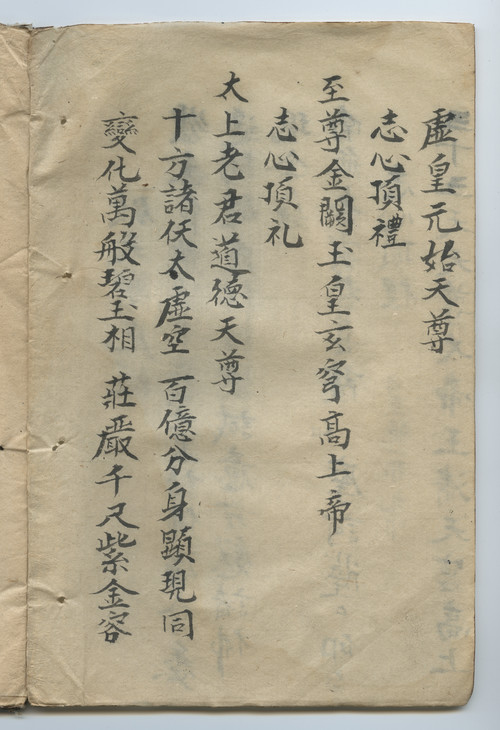 虛皇元始天尊
志心頂禮
至尊金闕玉皇玄穹高上帝
志心頂礼
太上老君道德天尊
十方諸天太虛空 百億分身顯現同
變化萬般碧玉相 莊嚴千尺紫金容